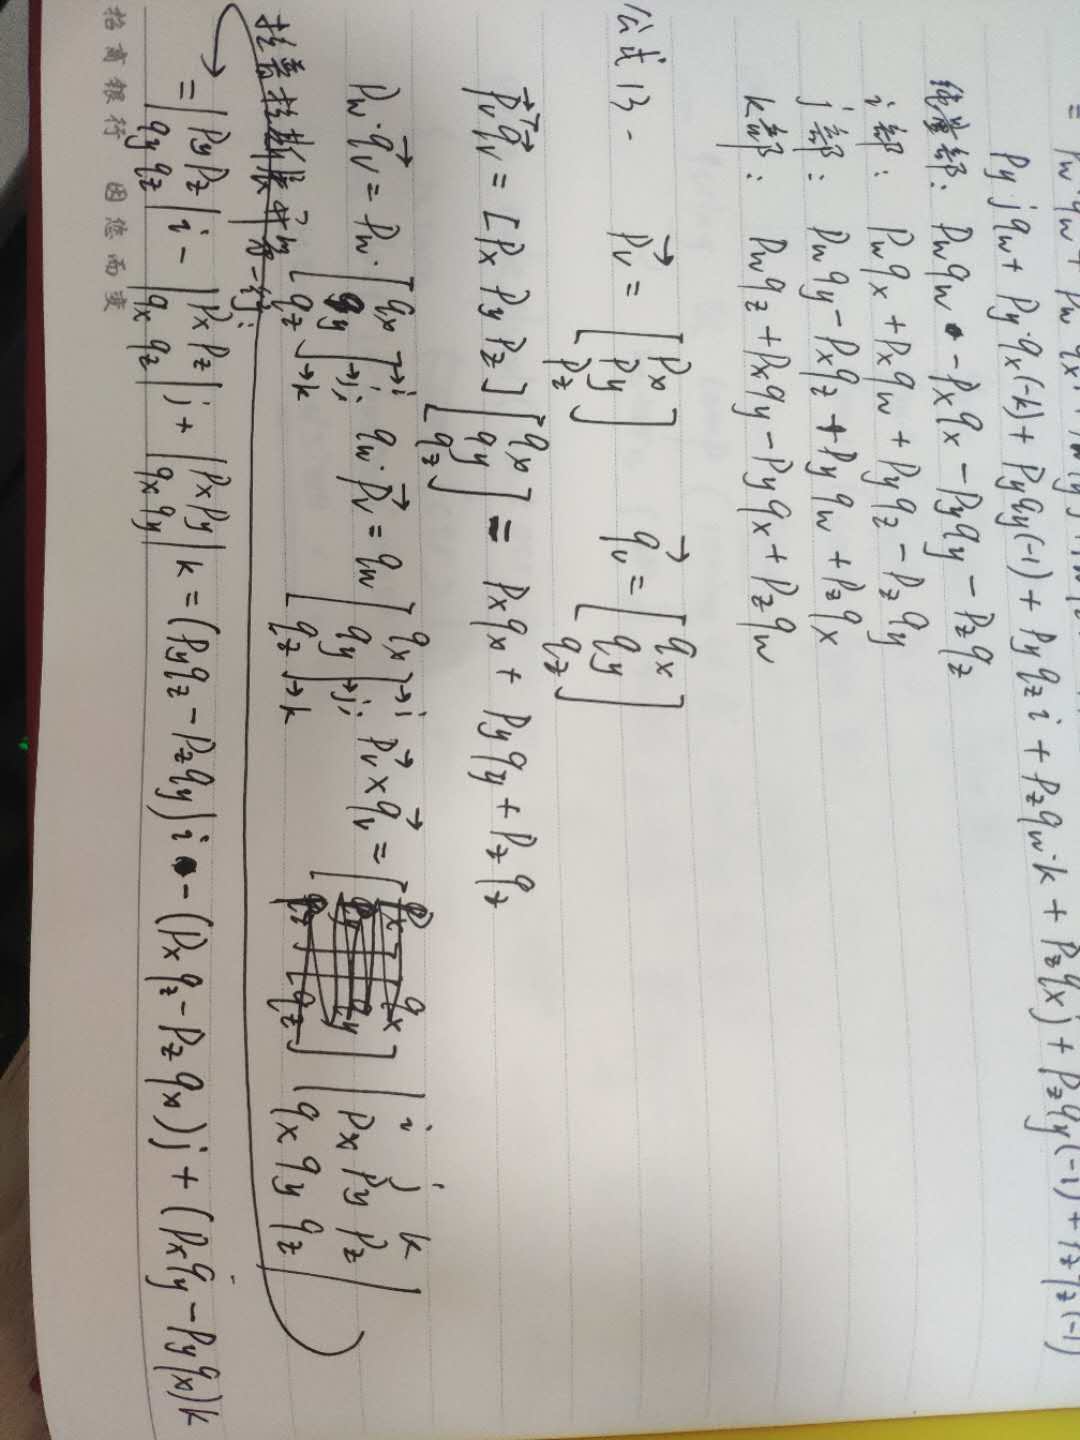 = Pw·qw + Pw qx
Py j qw + Py·qx(-k) + Py qy(-1) + Py qz i + Pz qw·k + Pz qx j + Pz qy(-1) + Pz qz(-1)
纯量部: Pw qw - Px qx - Py qy - Pz qz
i部: Pw qx + Px qw + Py qz - Pz qy
j部: Pw qy - Px qz + Py qw + Pz qx
k部: Pw qz + Px qy - Py qx + Pz qw
公式13- Pv = [Px Py Pz] qv = [qx qy qz]
Pv^T qv = [Px Py Pz] [qx qy qz] = Px qx + Py qy + Pz qz
Pw·qv = Pw·[qx qy qz] →i →j; →k qw·Pv = qw [qx qy qz] →i →j; →k Pv × qv = |i j k Px Py Pz qx qy qz|
拉普拉斯展开第一行:
= |Py Pz qy qz| i - |Px Pz qx qz| j + |Px Py qx qy| k = (Py qz - Pz qy) i - (Px qz - Pz qx) j + (Px qy - Py qx) k
招商银行 因您而变